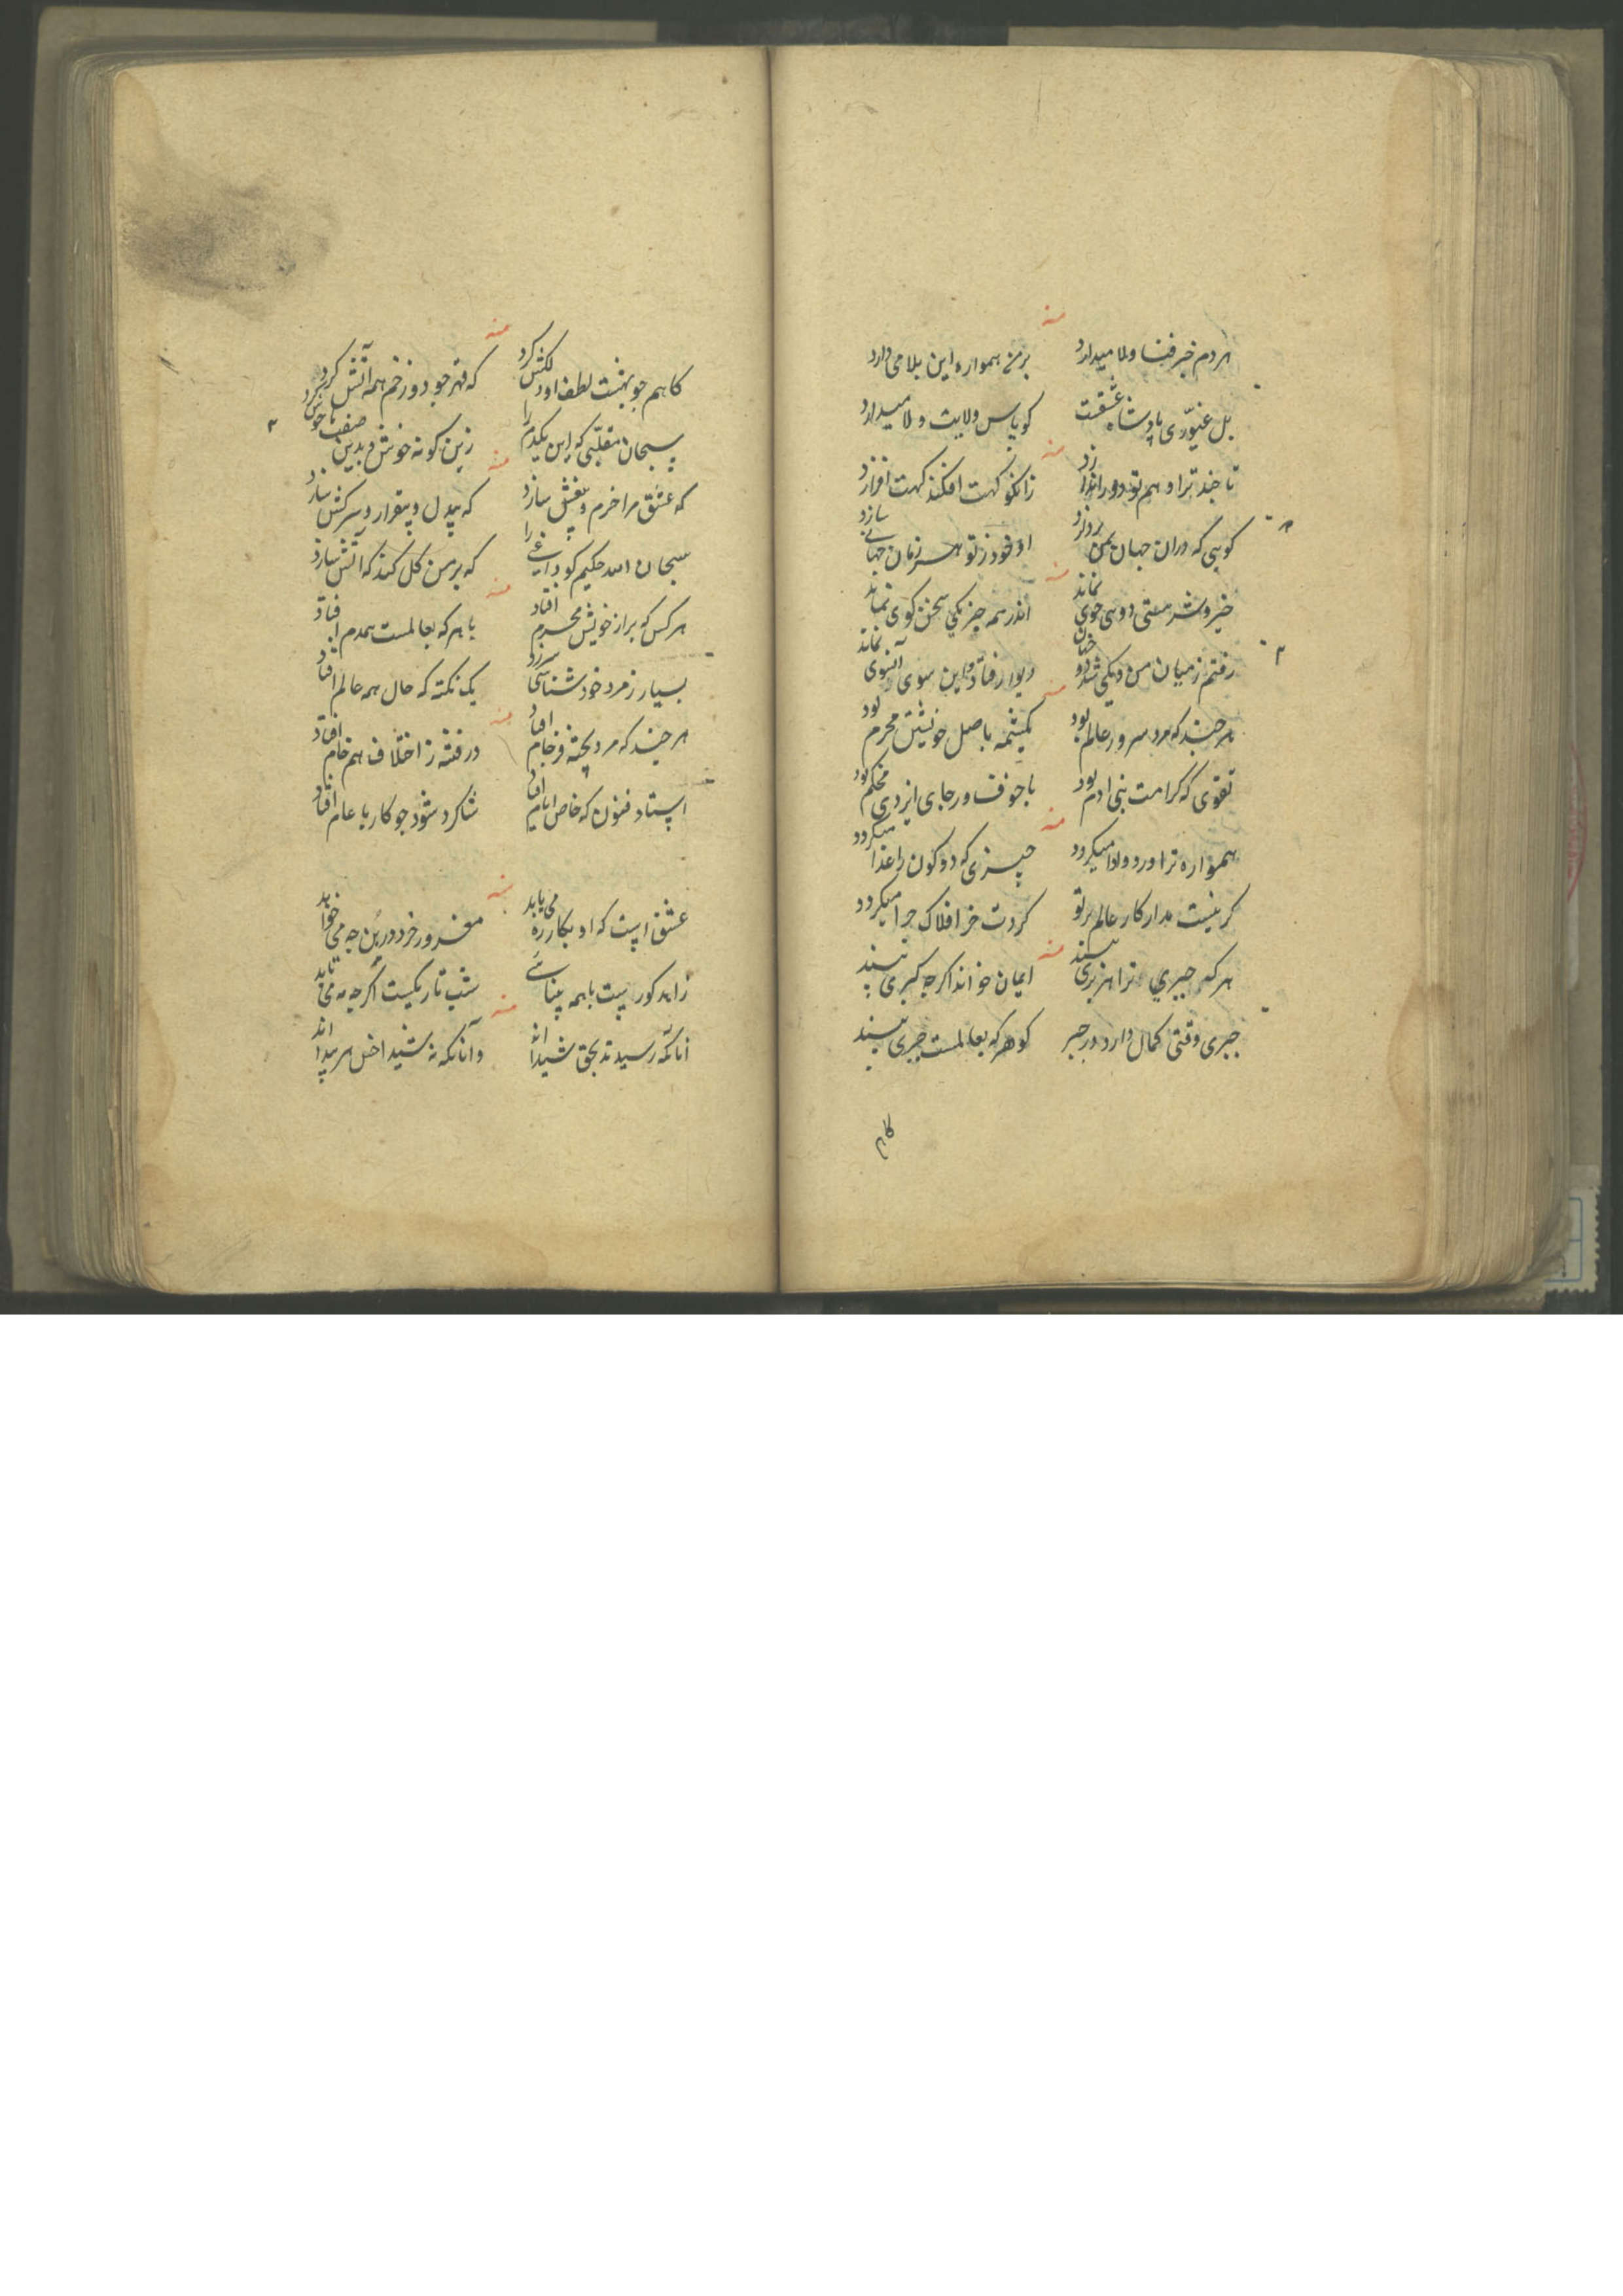 منه
هر دم خبر فنا ولا میدارد بر من همواره این بلا می دارد
بل غیوری پادشاه عشقت کو پاس ولایت و لا میدارد
منه
تا چند ترا و هم تو دور اندازد زانکو کهت افکند کهت افرازد
کویی که دران جهان بمن پردازد او خود ز تو هر زمان جهانی سازد
منه
خیر و شر هستی دوسی جوی نماند اندر همه جز یکی سخن کوی نماند
رفتم ز میان من و یکی شد دو جهان دیوار فتاد و این سوی آنسوی نماند
منه
هر چند که مرد سرور عالم بود کمیتمه باصل خویشتن محرم بود
تقوی که کرامت بنی ادم بود با خوف و رجای ایزدی محکم بود
منه
همواره ترا ورد و وادا میکردد چیزی که دو کون را غذا میکردد
کر نیست مدار کار عالم بر تو کردت خر افلاک چرا میکردد
منه
هر که جبری ترا هنر بری بیند ایمان خواند اکرچه کبری بیند
جبری وقتی کمال دارد در جبر کو هر که بعالمست جبری بیند
کاهم
منه
کاهم چو بهشت لطف او دلکش کرد که قهر چو دوزخم همه آتش کرد
سبحان مقلبی که این یکدم را زین کونه خوش و بدین صفت ناخوش کرد
منه
که عشق مرا خرم و بیغش سازد که بیدل و بیقرار و سرکش سازد
سبحان الله حکیم کو داغی را که بر من کل کند که آتش سازد
منه
هر کس که براز خویش محرم افتاد با هر که بعالمست همدم افتاد
بسیار ز مرد خود شناسی سر زد یک نکته که حال همه عالم افتاد
منه
هر چند که مرد پخته و خام افتاد در فتنه ز اختلاف هم خام افتاد
استاد فنون که خاص ایام افتاد شاکرد شود چو کار با عام افتاد
منه
عشق است که او بکار ره می یابد مغرور خرد درین چه می خوابد
زاهد کوریست با همه بینائی شب تاریکست اکرچه مه می تابد
منه
آنانکه رسیدند بحق شیدا اند وآنانکه نه شیدا خل هر پیدا اند